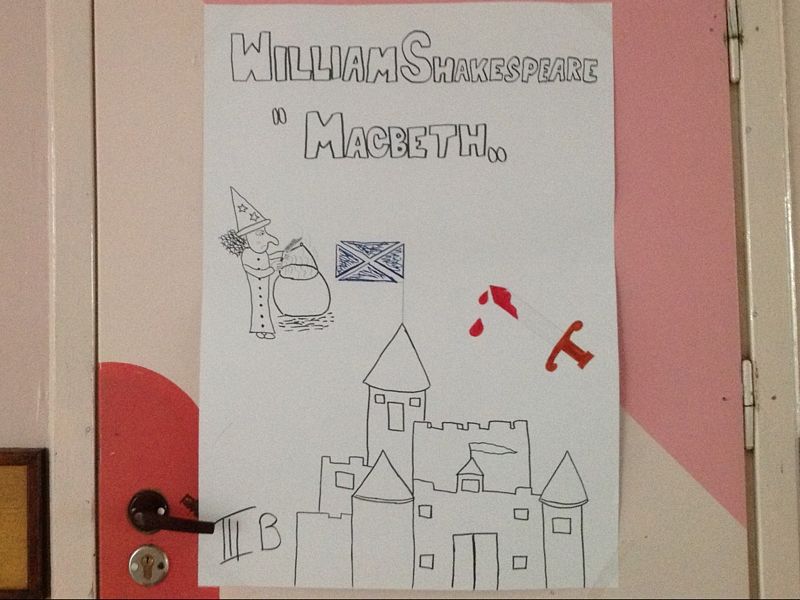 WILLIAM SHAKESPEARE
"MACBETH„
III B